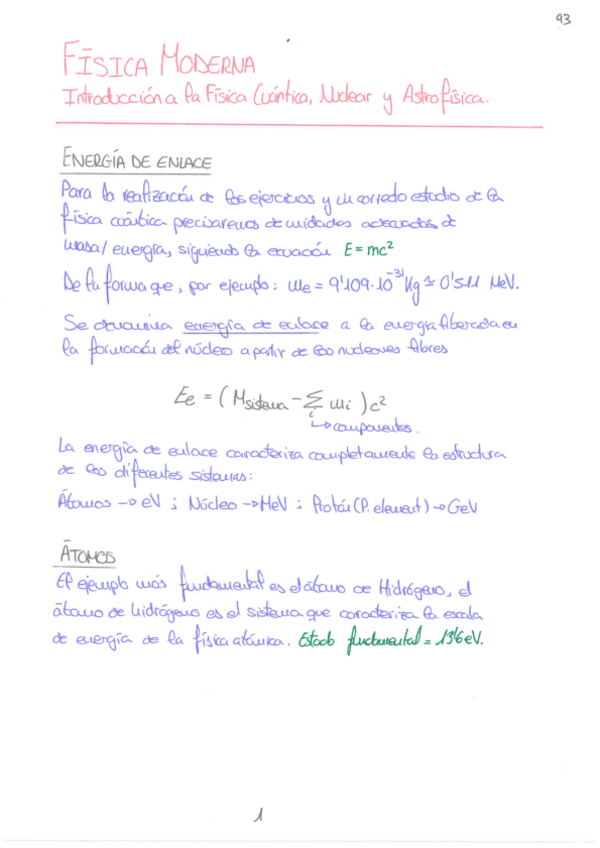 93
FÍSICA MODERNA
Introducción a la Física Cuántica, Nuclear y Astrofísica.
ENERGÍA DE ENLACE
Para la realización de los ejercicios y un correcto estudio de la
física cuántica precisaremos de unidades adecuadas de
masa/energía, siguiendo la ecuación E=mc²
De la forma que, por ejemplo: me = 9'109·10⁻³¹ Kg ≃ 0'511 MeV.
Se denomina energía de enlace a la energía liberada en
la formación del núcleo a partir de los nucleones libres
Ee = (Msistema - Σ mi)c²
i
↳ componentes.
La energía de enlace caracteriza completamente la estructura
de los diferentes sistemas:
Átomos → eV ; Núcleo → MeV ; Protón (P. element) → GeV
ÁTOMOS
El ejemplo más fundamental es el átomo de Hidrógeno, el
átomo de hidrógeno es el sistema que caracteriza la escala
de energía de la física atómica. Estado fundamental = 13'6 eV.
1